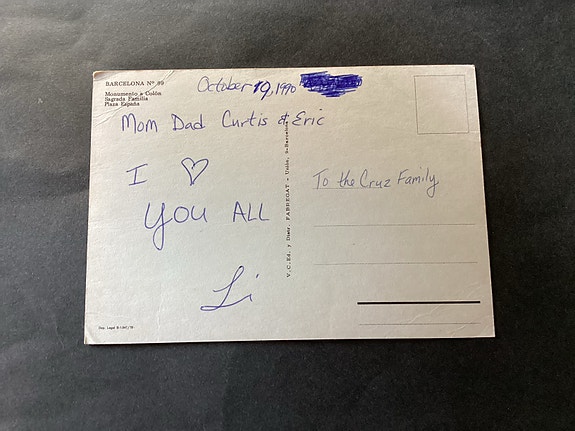 BARCELONA Nº 89
Monumento a Colón
Sagrada Familia
Plaza España
October 19, 1990
Mom Dad Curtis & Eric
I ♡
YOU ALL
Li
V. C. Ed. y Distr. FABREGAT - Unión, 9-Barcelona
To the Cruz Family